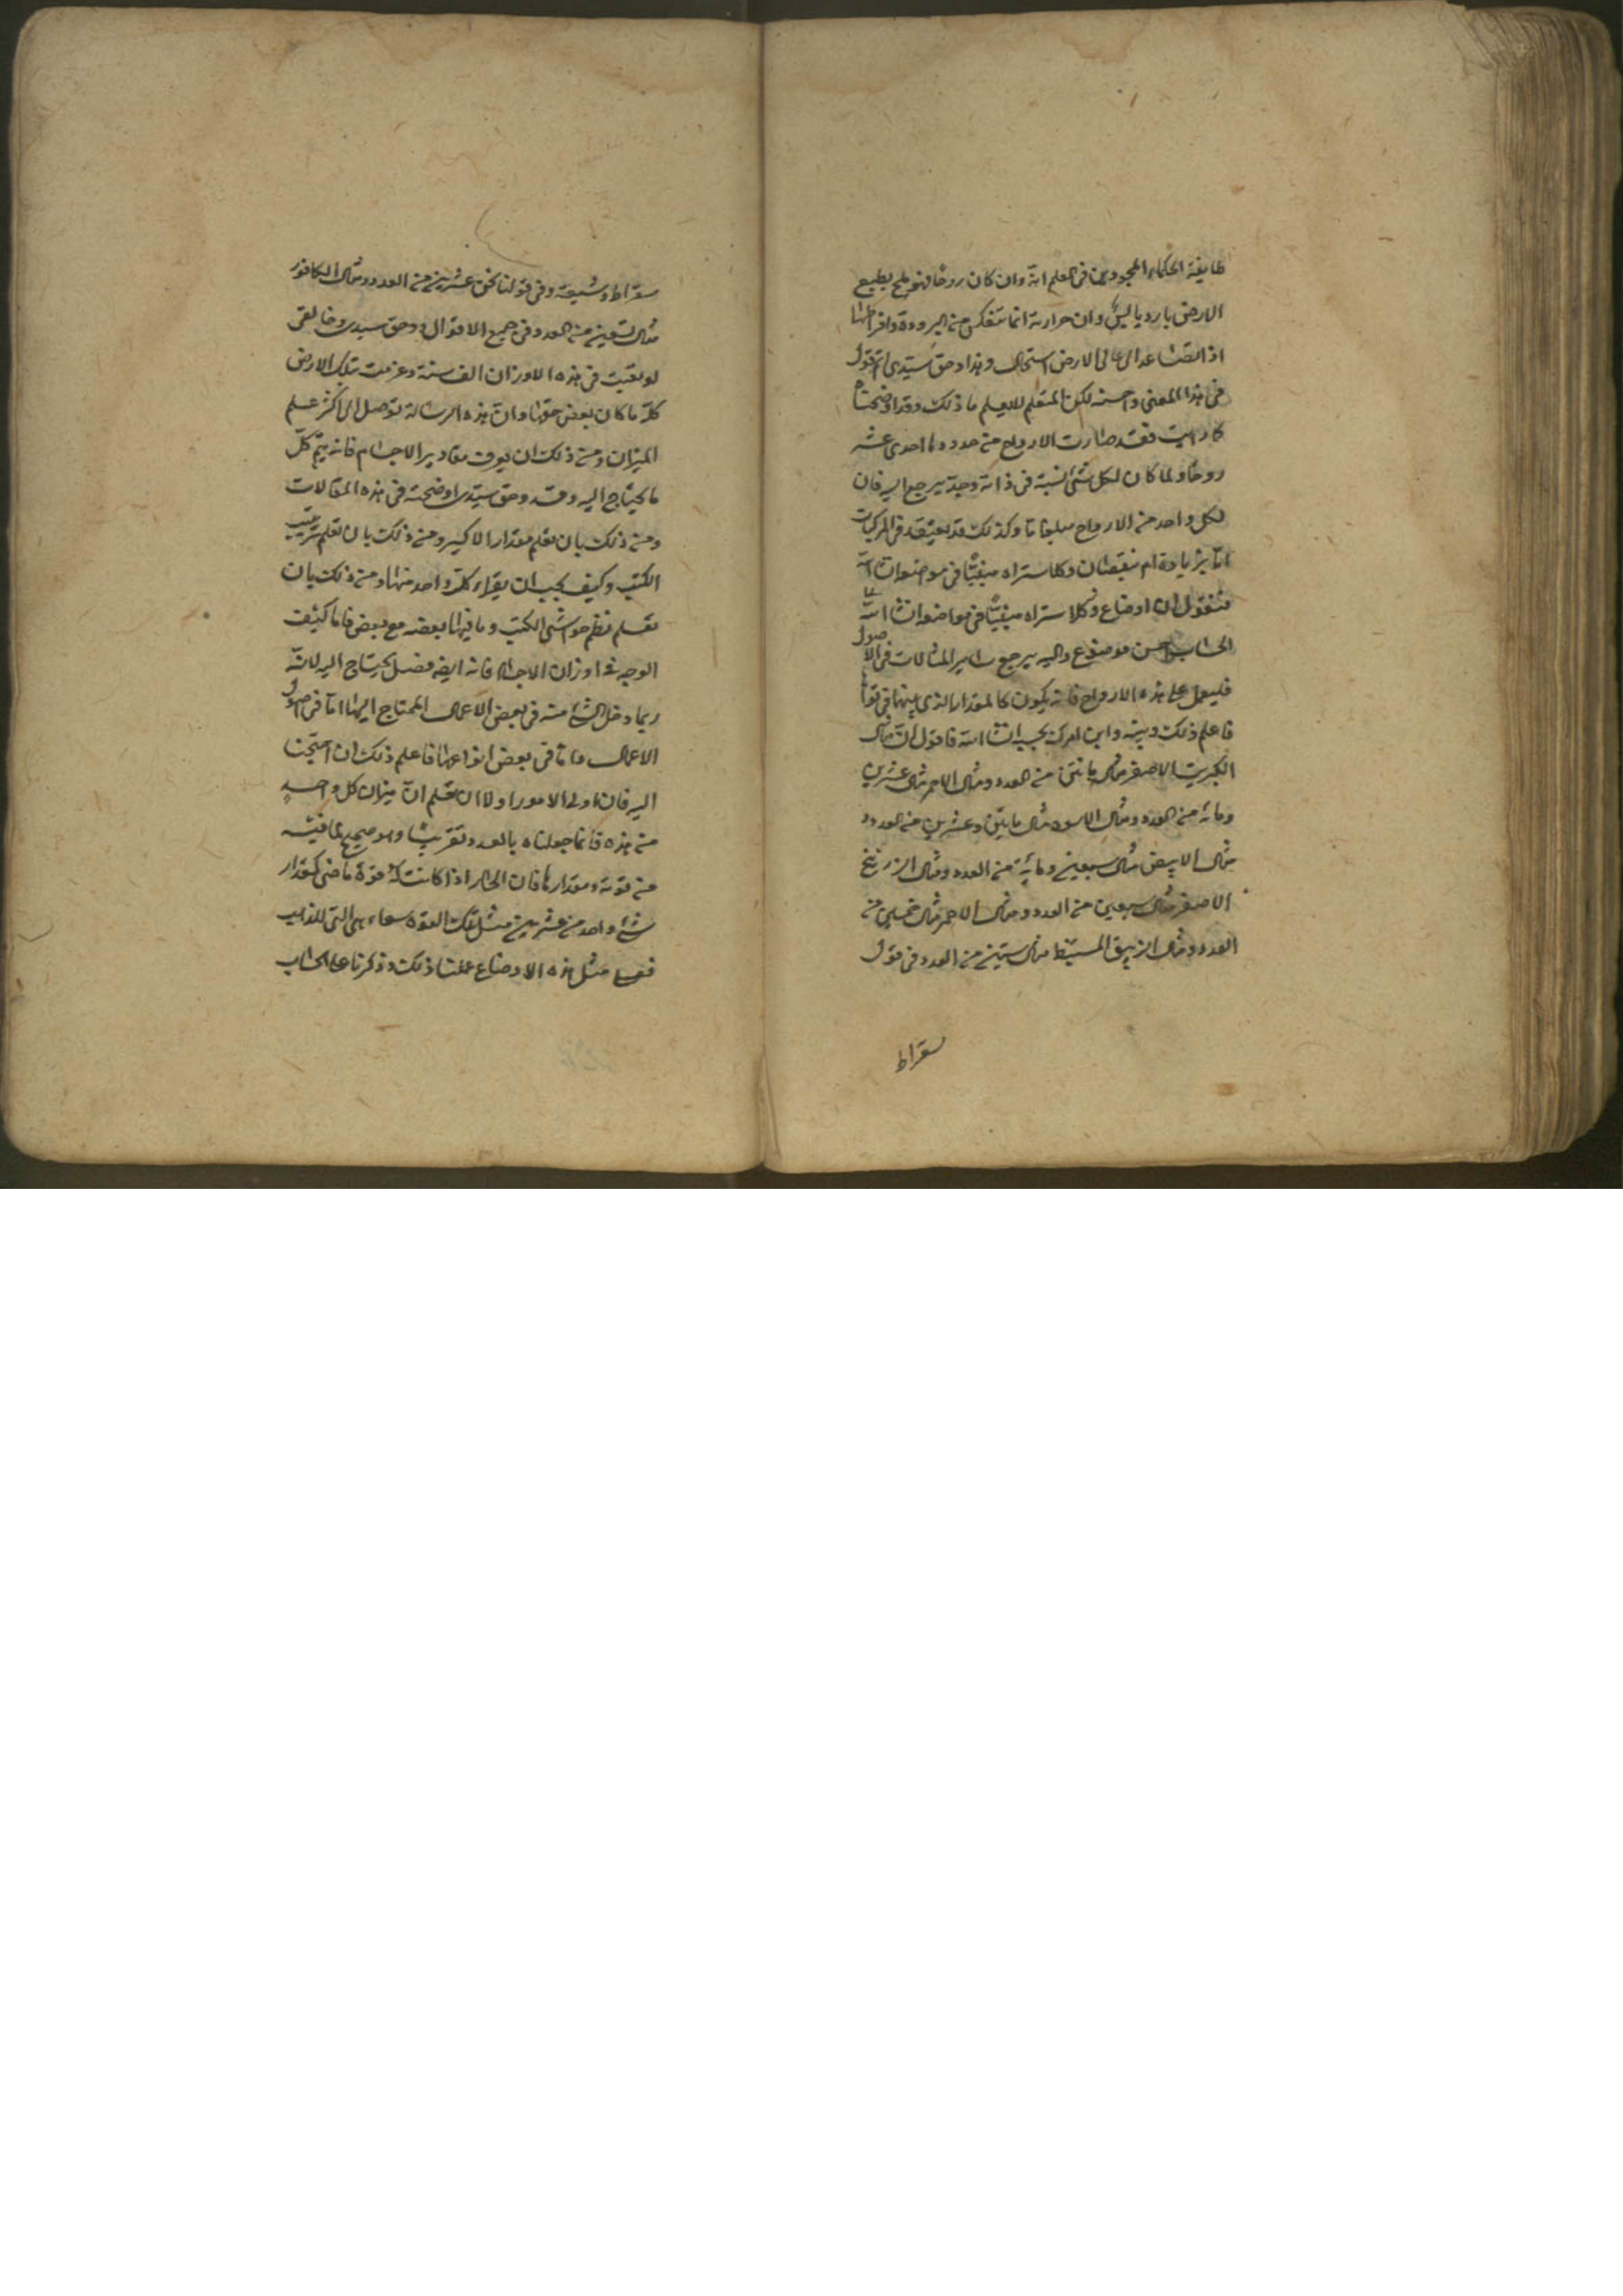 طايفة الحكماء المجودين فى العلم انه وان كان روحًا فهو ملح بطبع
الارض بارد يابس وان حرارته انما تنعكس من البرودة وافراطها
اذ الصاعد الى عالى الارض استحال وهذا وحق سيدى اتم قول
فى هذا المعنى واحسنه لكن المتعلم لا يعلم ما ذلك وقد اوضحناه
كما رايت فقد صارت الارواح من حدودها احدى عشر
روحًا ولما كان لكل شئ نسبة فى ذاته وحدّ يرجع اليه فان
لكل واحد من الارواح مبلغا ما وكذلك قد يعتقد فى المركبات
اما بزيادة ام نقصان وكلا ستراه مبيّنًا فى موضعه ان شا الله
فنقول ان اوضاع وكلا ستراه مبيّنًا فى مواضعه انشا الله
الحساب احسن موضوع واليه يرجع ساير المثالات فى الاصول
فليعمل على هذه الارواح فانه يكون كالمقدار الذى بينها فى قواها
فاعلم ذلك وبينه وابن امرك بحسبه انشا الله فاقول ان مثال
الكبريت الاصفر مثال مائتين من العدد ومثال الاحمر مثال عشرين
ومائة من العدد ومثال الاسود مثال مايتين وعشرين من العدد و
مثال الابيض مثال سبعين ومائة من العدد ومثال الزرنيخ
الاصفر مثال سبعين من العدد ومثال الاحمر مثال خمسين من
العدد ومثال الزيبق المستنبط مثال ستين من العدد فى قول
سقراط
سقراط وشيعته وفى قولنا نحن عشرين من العدد ومثال الكافور
مثال تسعين من العدد فى جميع الاقوال ووحق سيدى وخالقى
لو بقيت فى هذه الاوزان الف سنة وعزمت تلك الارض
كلّه ما كان بعض حقها وانّ هذه الرسالة توصل الى اكثر علم
الميزان ومن ذلك ان يعرف مقادير الاجسام فانه يتم كلّ
ما يحتاج اليه وقد وحق سيدى اوضحته فى هذه المقالات
ومن ذلك بان تعلم مقدار الاكسير ومن ذلك بان تعلم ترتيب
الكتب وكيف يجب ان يقراء كلّ واحد منها ومن ذلك بان
تعلم نظم حواشى الكتب وما فيها بعضه مع بعض فاما كيف
الوجه فى اوزان الاجسام فانه ايضه فضل يحتاج اليه لانّه
ربما دخل الشئ منه فى بعض الاعمال المحتاج اليها اما فى اصول
الاعمال واما فى بعض انواعها فاعلم ذلك ان احتجت
اليه فان اولى الامور اولا ان تعلم انّ ميزان كل واحدٍ
من هذه فانما جعلناه بالعدد تقريبًا وهو صحيح بما فيه
من قوته ومقدارها فان الحار اذا كانت له قوة ما ضى كمقدار
شئ واحد من عشرين مثل تلك القوة سواء هى التى للذهب
فعلى مثل هذه الاوضاع عملنا ذلك وذكرنا على الحساب